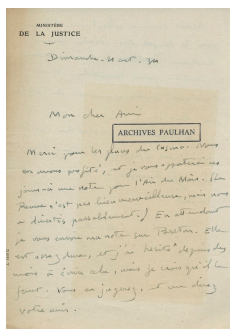 MINISTÈRE
DE LA JUSTICE
Dimanche
Mon cher Ami
ARCHIVES PAULHAN
Merci pour les places du Casino. Nous
en avons profité, et je vous apporterai ces
jours-ci une note pour l'Air du Mois. (La
Revue n'est pas bien merveilleuse, mais nous
a divertis passablement.) En attendant
je vous envoie ma note sur Breton. Elle
est assez dure, et j'ai hésité depuis des
mois à écrire cela, mais je crois qu'il le
faut. Vous en jugerez, et me direz
votre avis.